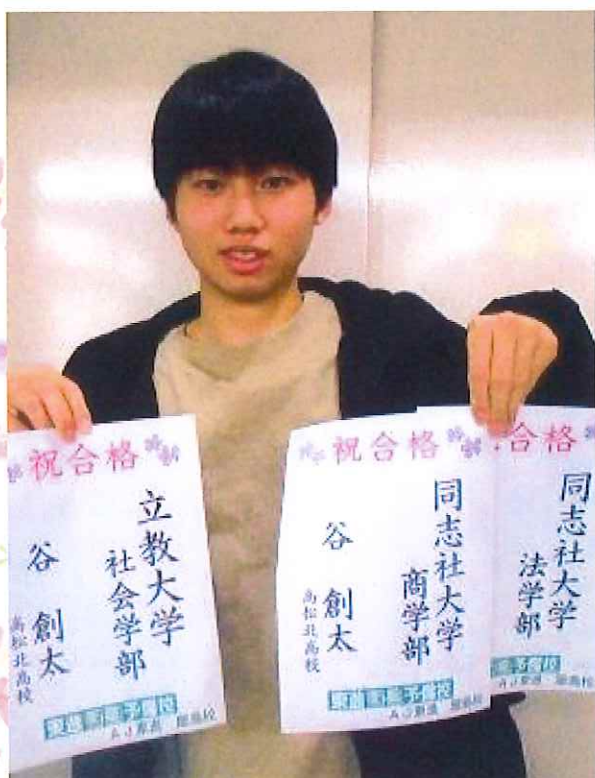 祝合格
立教大学
社会学部
谷 創太
高松北高校
祝合格
同志社大学
商学部
谷 創太
高松北高校
合格
同志社大学
法学部